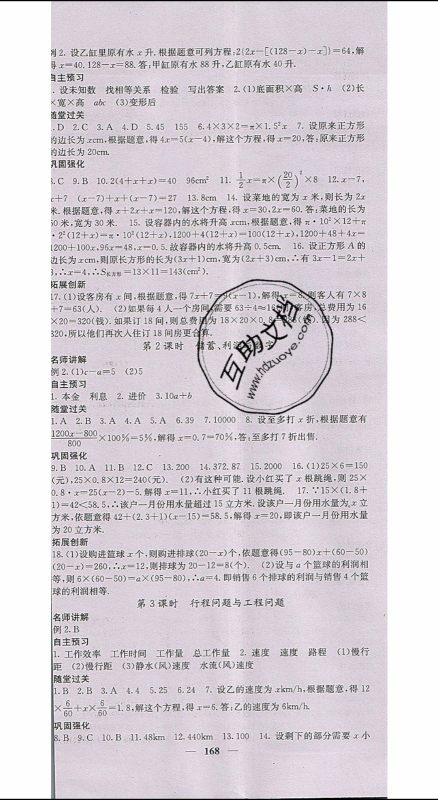 例2. 设乙缸里原有水 x 升.根据题意可列方程:2{2x-[(128-x)-x]}=64,解
得 x=40.128-x=88.答:甲缸原有水 88 升,乙缸原有水 40 升.
自主预习
1. 设未知数 找相等关系 检验 写出答案 2.(1)底面积×高 S·h (2)长
×宽×高 abc (3)变形后
随堂过关
1.D 2.C 3.A 4.D 5.45 155 6.4×3×2=π×1.5²x 7. 设原来正方形
的边长为 xcm,根据题意,得 4x=5(x-4),解这个方程,得 x=20,答:原来正方形
的边长为 20cm.
巩固强化
8.C 9.B 10.2(4+x+x)=40 96cm² 11. 1/2 x=π×(20/2)²×8 12.x-7,
x+7 (x-7)+x+(x-7)=27 13.8cm 14. 设菜地的宽为 x 米,则长为 2x
米.根据题意,得 x+2x+x=120,解这个方程,得 x=30,2x=60.答:菜地的长为
60 米,宽为 30 米. 15. 设容器内的水将升高 xcm,根据题意,得 π·10²×12+π
·2²(12+x)=π·10²(12+x),1200+4(12+x)=100(12+x),1200+48+4x=
1200+100x,96x=48,x=0.5.故容器内的水将升高 0.5cm. 16. 设正方形 A 的
边长为 xcm,则原长方形的长为(3x+1)cm,宽为(2x+3)cm,∴有 3x-1=2x+
3,∴x=4,∴S长方形=13×11=143(cm²).
拓展创新
17.(1)设客房有 x 间,根据题意,得 7x+7=9(x-1),解得 x=8,则客人有 7×8
+7=63(人). (2)如果每 4 人一个房间,需要 63÷4≈16 客房,总费用为 16
×20=320(钱).如果订 18 间,则总费用为 18×20×0.8=288(钱).因为 288<
320,所以他们再次入住订 18 间房更合算.
第 2 课时 储蓄、利
名师讲解
例 2.(1)c-a=5 (2)5
自主预习
1. 本金 利息 2. 进价 3.10a+b
随堂过关
1.A 2.B 3.A 4.A 5.A 6.39 7.10000 8. 设至多打 x 折,根据题意有
(1200x-800)/800 ×100%=5%,解得 x=0.7=70%,答:至多打 7 折出售.
巩固强化
9.B 10.A 11.B 12.C 13.200 14.372.87 15.2000 16.(1)25×6=150
(元),25×0.8×12=240(元). (2)有这种可能.设小红买了 x 根跳绳,则 25×
0.8·x=25(x-2)-5.解得 x=11.∴小红买了 11 根跳绳. 17.∵15×(1.8+
1)=42<58.5,∴该户一月份用水量超过 15 立方米.设该户一月份用水量为 x 立
方米,依题意得 42+(2.3+1)(x-15)=58.5,解得 x=20,即该户一月份用水量
为 20 立方米.
拓展创新
18.(1)设购进篮球 x 个,则购进排球(20-x)个,依题意得(95-80)x+(60-50)
(20-x)=260,∴x=12,则排球为 20-12=8(个). (2)设与 a 个篮球的利润相
等,则 6×(60-50)=a×(95-80),∴a=4.即销售 6 个排球的利润与销售 4 个篮
球的利润相等.
第 3 课时 行程问题与工程问题
名师讲解
例 2.B
自主预习
1. 工作效率 工作时间 工作量 总工作量 2. 速度 速度 路程 (1)慢行
距 (2)慢行距 (3)静水(风)速度 水流(风)速度
随堂过关
1.B 2.B 3.A 4.4 5.25 6.24 7. 设乙的速度为 xkm/h,根据题意,得 12
×6/60+x×6/60=1.8,解这个方程,得 x=6.答:乙的速度为 6km/h.
巩固强化
8.B 9.C 10.B 11.48km 12.440km 13.100 14. 设剩下的部分需要 x 小
— 168 —
互助文档
www.hdzuoye.com